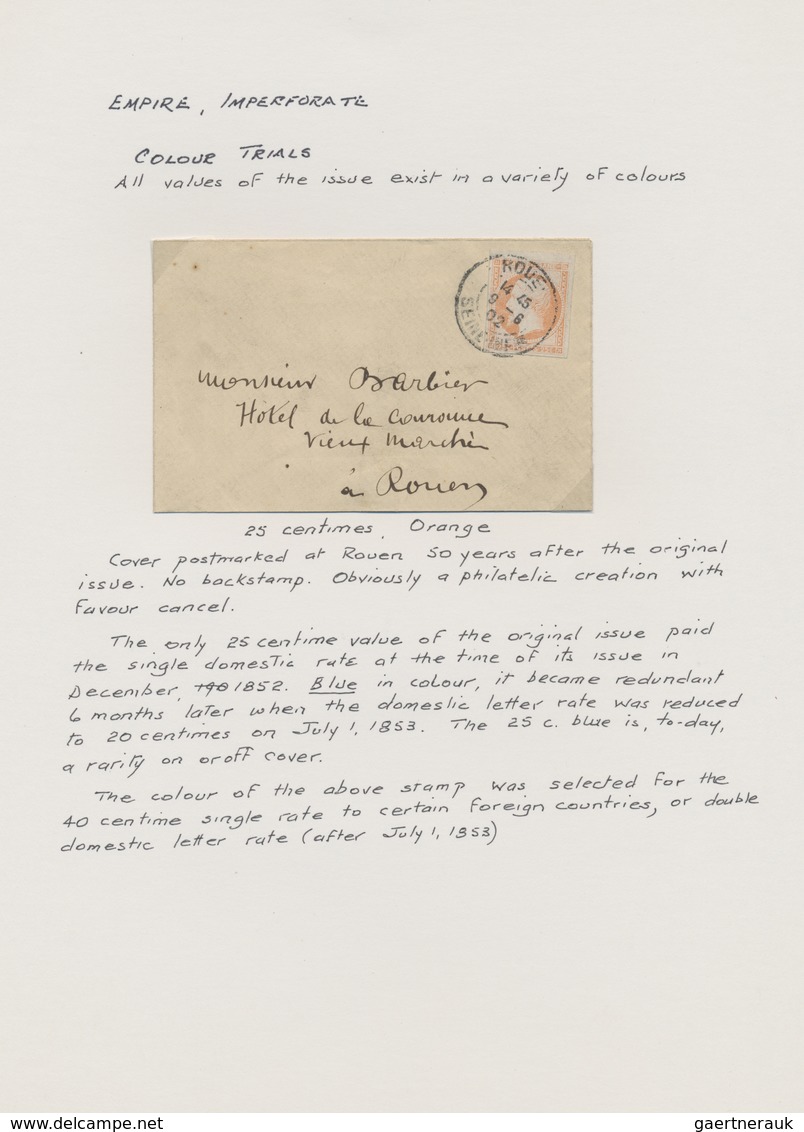 EMPIRE, IMPERFORATE
COLOUR TRIALS
All values of the issue exist in a variety of colours
ROUE
14 15
9 - 6
02
SEINE
Monsieur Barbier
Hôtel de la Couronne
Vieux Marché
à Rouen
25 centimes, Orange
Cover postmarked at Rouen 50 years after the original
issue. No backstamp. Obviously a philatelic creation with
favour cancel.
The only 25 centime value of the original issue paid
the single domestic rate at the time of its issue in
December, 1852. Blue in colour, it became redundant
6 months later when the domestic letter rate was reduced
to 20 centimes on July 1, 1853. The 25 c. blue is, to-day,
a rarity on or off cover.
The colour of the above stamp was selected for the
40 centime single rate to certain foreign countries, or double
domestic letter rate (after July 1, 1853)
www.delcampe.net
gaertnerauk